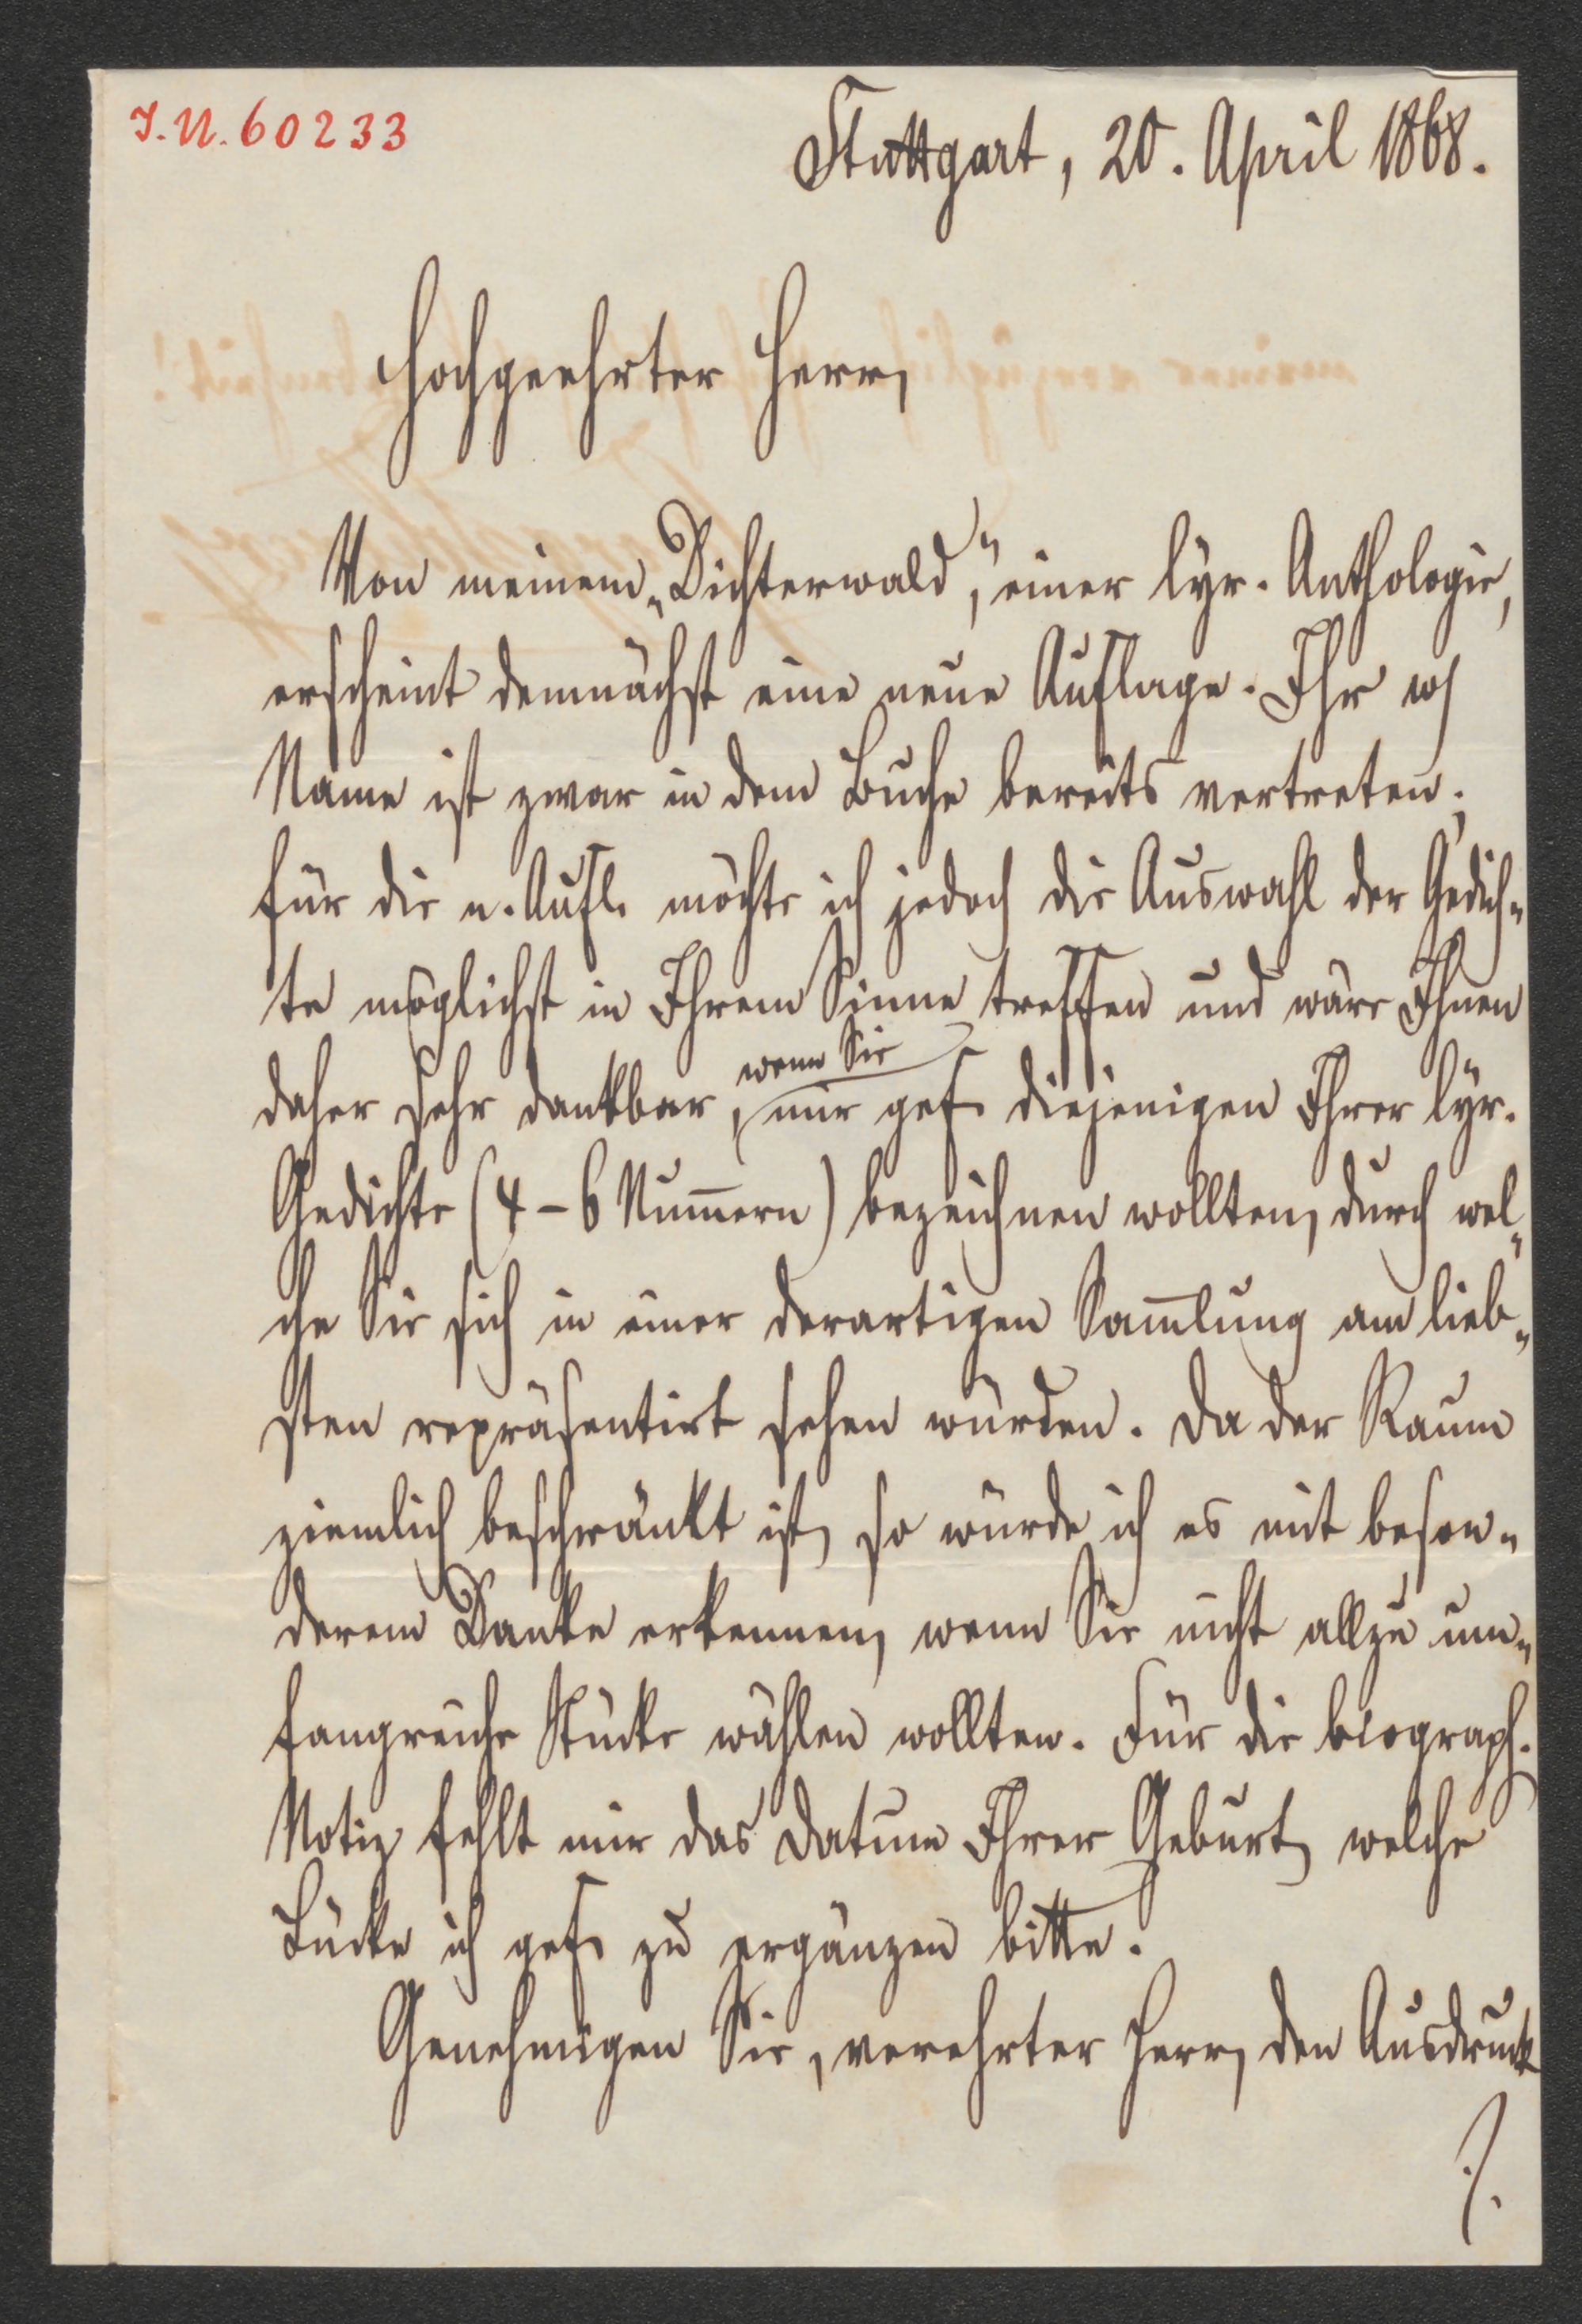 I.N. 60233
Stuttgart, 20. April 1868.
Hochgeehrter Herr,
Von meinem „Dichterwald“, einer lyr. Anthologie,
erscheint demnächst eine neue Auflage. Ihr w
Name ist zwar in dem Buche bereits vertreten;
für die n. Aufl. möchte ich jedoch die Auswahl der Gedich-
te möglichst in Ihrem Sinne treffen und wäre Ihnen
daher sehr dankbar, wenn Sie mir gef. diejenigen Ihrer lyr.
Gedichte (4-6 Num̄ern) bezeichnen wollten, durch wel-
che Sie sich in einer derartigen Sam̄lung am lieb-
sten repräsentirt sehen würden. Da der Raum
ziemlich beschränkt ist, so würde ich es mit beson-
derem Danke erkennen, wenn Sie nicht allzu um-
fangreiche Stücke wählen wollten. Für die biograph.
Notiz fehlt mir das Datum Ihrer Geburt, welche
Lücke ich gef. zu ergänzen bitte.
Genehmigen Sie, verehrter Herr, den Ausdruck
./.